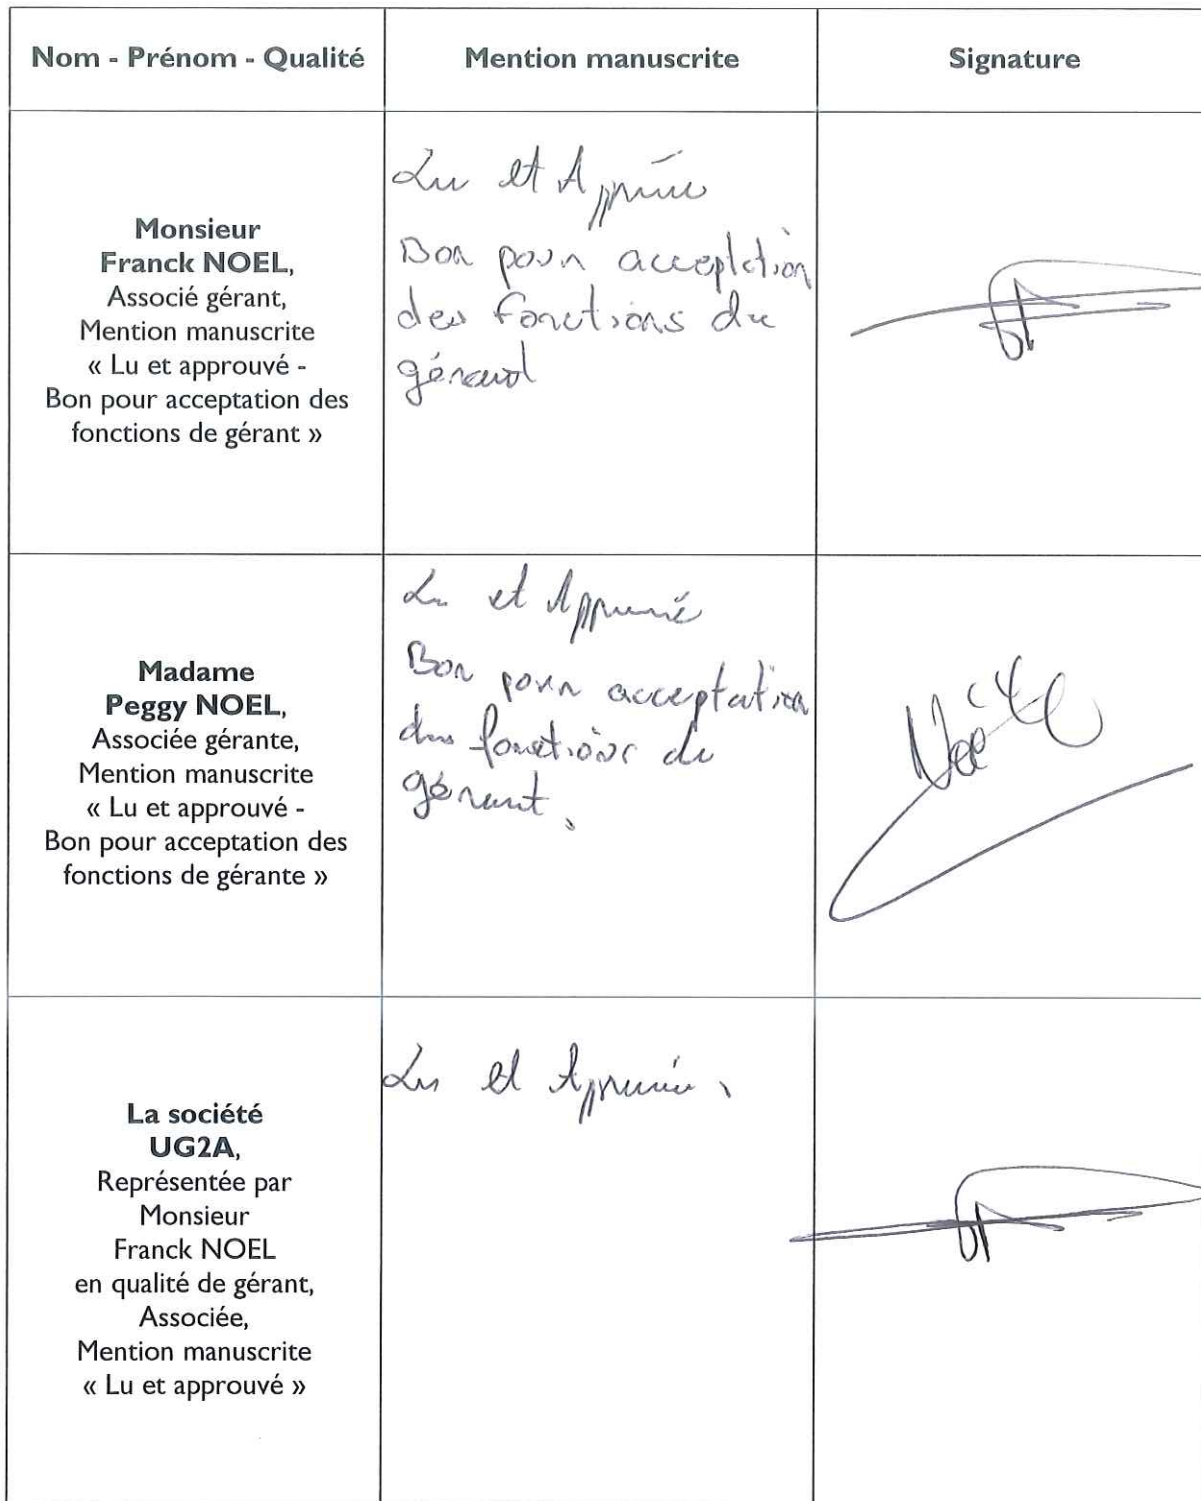 Nom - Prénom - Qualité
Mention manuscrite
Signature
Monsieur
Franck NOEL,
Associé gérant,
Mention manuscrite
« Lu et approuvé -
Bon pour acceptation des
fonctions de gérant »
Lu et Approuvé
Bon pour acceptation
des fonctions de
gérant
Madame
Peggy NOEL,
Associée gérante,
Mention manuscrite
« Lu et approuvé -
Bon pour acceptation des
fonctions de gérante »
Lu et Approuvé
Bon pour acceptation
des fonctions de
gérant.
La société
UG2A,
Représentée par
Monsieur
Franck NOEL
en qualité de gérant,
Associée,
Mention manuscrite
« Lu et approuvé »
Lu et Approuvé.